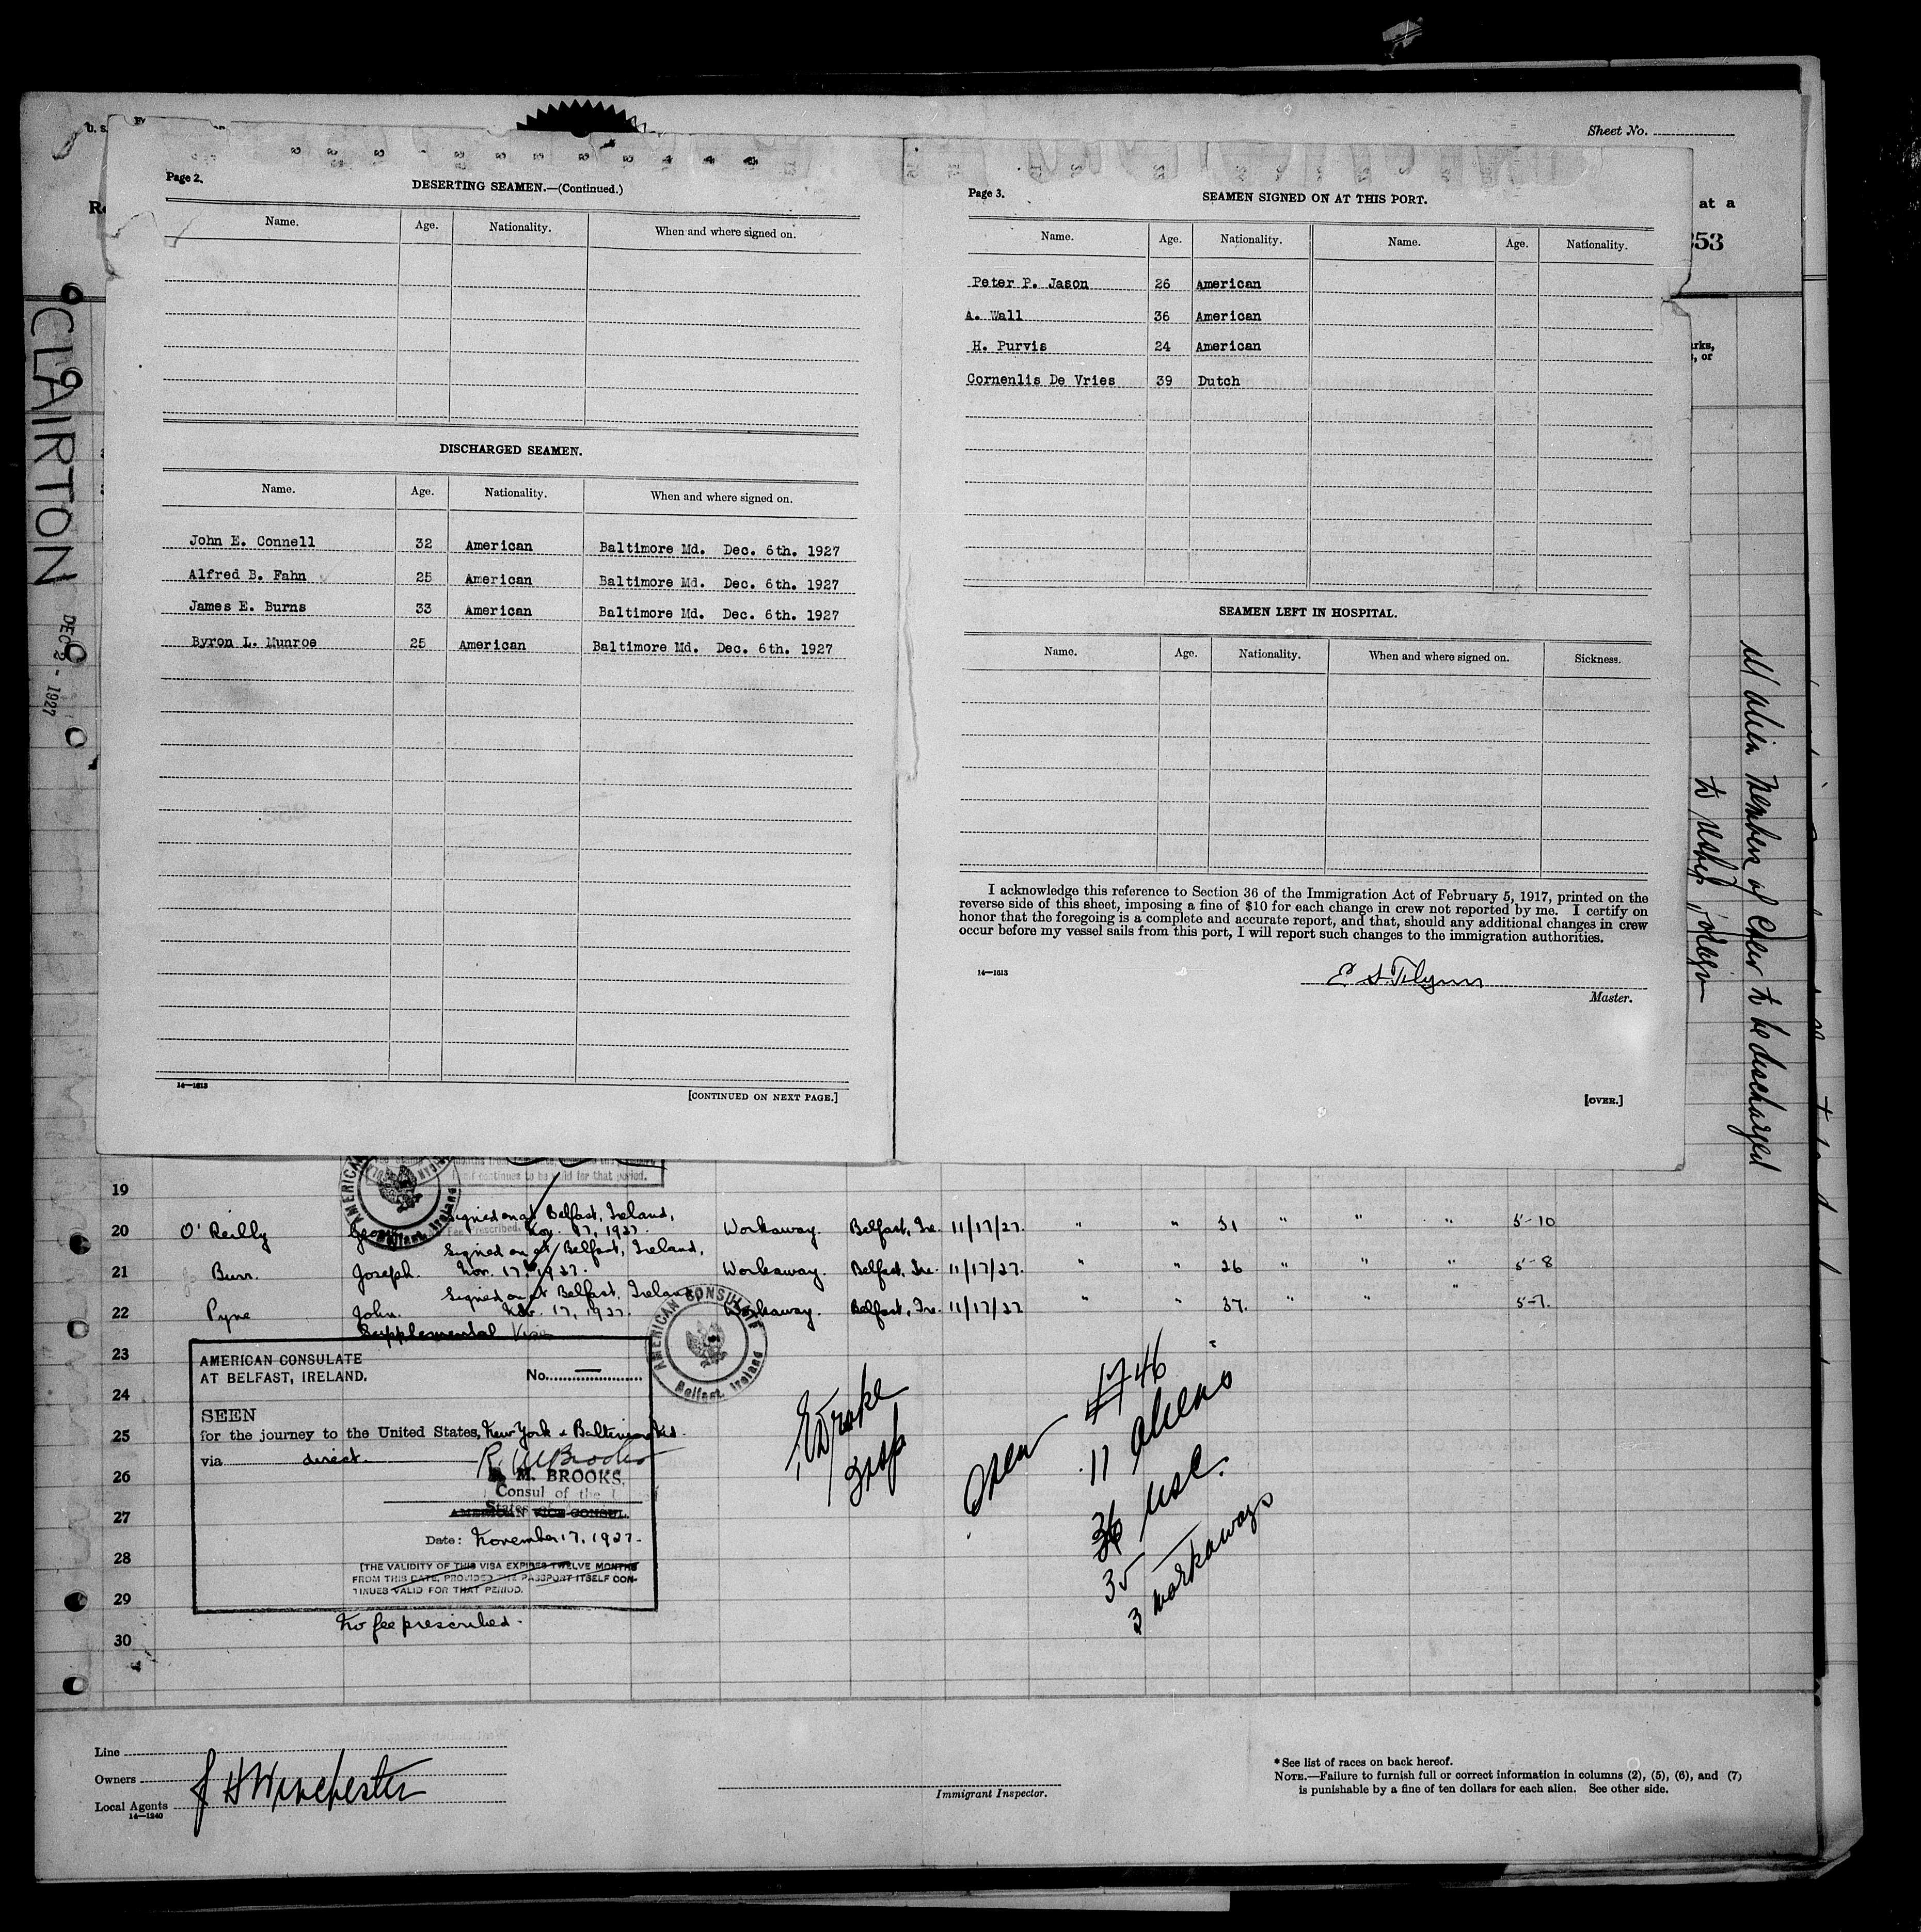 U. S.
Sheet No.
at a
353
CLAIRTON
DEC 2 - 1927
Page 2.
DESERTING SEAMEN.—(Continued.)
Name. Age. Nationality. When and where signed on.
DISCHARGED SEAMEN.
Name. Age. Nationality. When and where signed on.
John E. Connell 32 American Baltimore Md. Dec. 6th. 1927
Alfred B. Fahn 25 American Baltimore Md. Dec. 6th. 1927
James E. Burns 33 American Baltimore Md. Dec. 6th. 1927
Byron L. Munroe 25 American Baltimore Md. Dec. 6th. 1927
14—1613
[CONTINUED ON NEXT PAGE.]
Page 3.
SEAMEN SIGNED ON AT THIS PORT.
Name. Age. Nationality. Name. Age. Nationality.
Peter P. Jason 26 American
A. Wall 36 American
H. Purvis 24 American
Cornenlis De Vries 39 Dutch
SEAMEN LEFT IN HOSPITAL.
Name. Age. Nationality. When and where signed on. Sickness.
I acknowledge this reference to Section 36 of the Immigration Act of February 5, 1917, printed on the
reverse side of this sheet, imposing a fine of $10 for each change in crew not reported by me. I certify on
honor that the foregoing is a complete and accurate report, and that, should any additional changes in crew
occur before my vessel sails from this port, I will report such changes to the immigration authorities.
14—1613
E S. Flynn
Master.
[OVER.]
All alien members of Crew to be discharged
to reship foreign
months from
if continues to be valid for that period.
19
20 O'Reilly Signed on at Belfast, Ireland, Nov. 17, 1927. Workaway. Belfast, Ire. 11/17/27. " " 31 " " " 5-10
21 Burr. Joseph. Signed on at Belfast, Ireland, Nov. 17, 1927. Workaway. Belfast, Ire. 11/17/27. " " 26 " " " 5-8
22 Pyne John. Signed on at Belfast, Ireland, Nov. 17, 1927. Workaway. Belfast, Ire. 11/17/27 " " 37. " " " 5-7.
Supplemental Visa
23
24
25
26
27
28
29
30
AMERICAN CONSULATE
AT BELFAST, IRELAND.
No. —
SEEN
for the journey to the United States, New York & Baltimore Md.
via direct.
R. M. Brooks
R. M. BROOKS,
Consul of the
States
AMERICAN VICE CONSUL.
Date: November 17, 1927.
[THE VALIDITY OF THIS VISA EXPIRES TWELVE MONTHS
FROM THIS DATE, PROVIDED THE PASSPORT ITSELF CON-
TINUES VALID FOR THAT PERIOD.
No fee prescribed.
AMERICAN CONSULATE
Belfast, Ireland
Drake
Insp
Crew
46
11 Aliens
36 USC.
35
3 workaways
Line
Owners
Local Agents
J H Winchester
14—1240
Immigrant Inspector.
*See list of races on back hereof.
NOTE.—Failure to furnish full or correct information in columns (2), (5), (6), and (7)
is punishable by a fine of ten dollars for each alien. See other side.